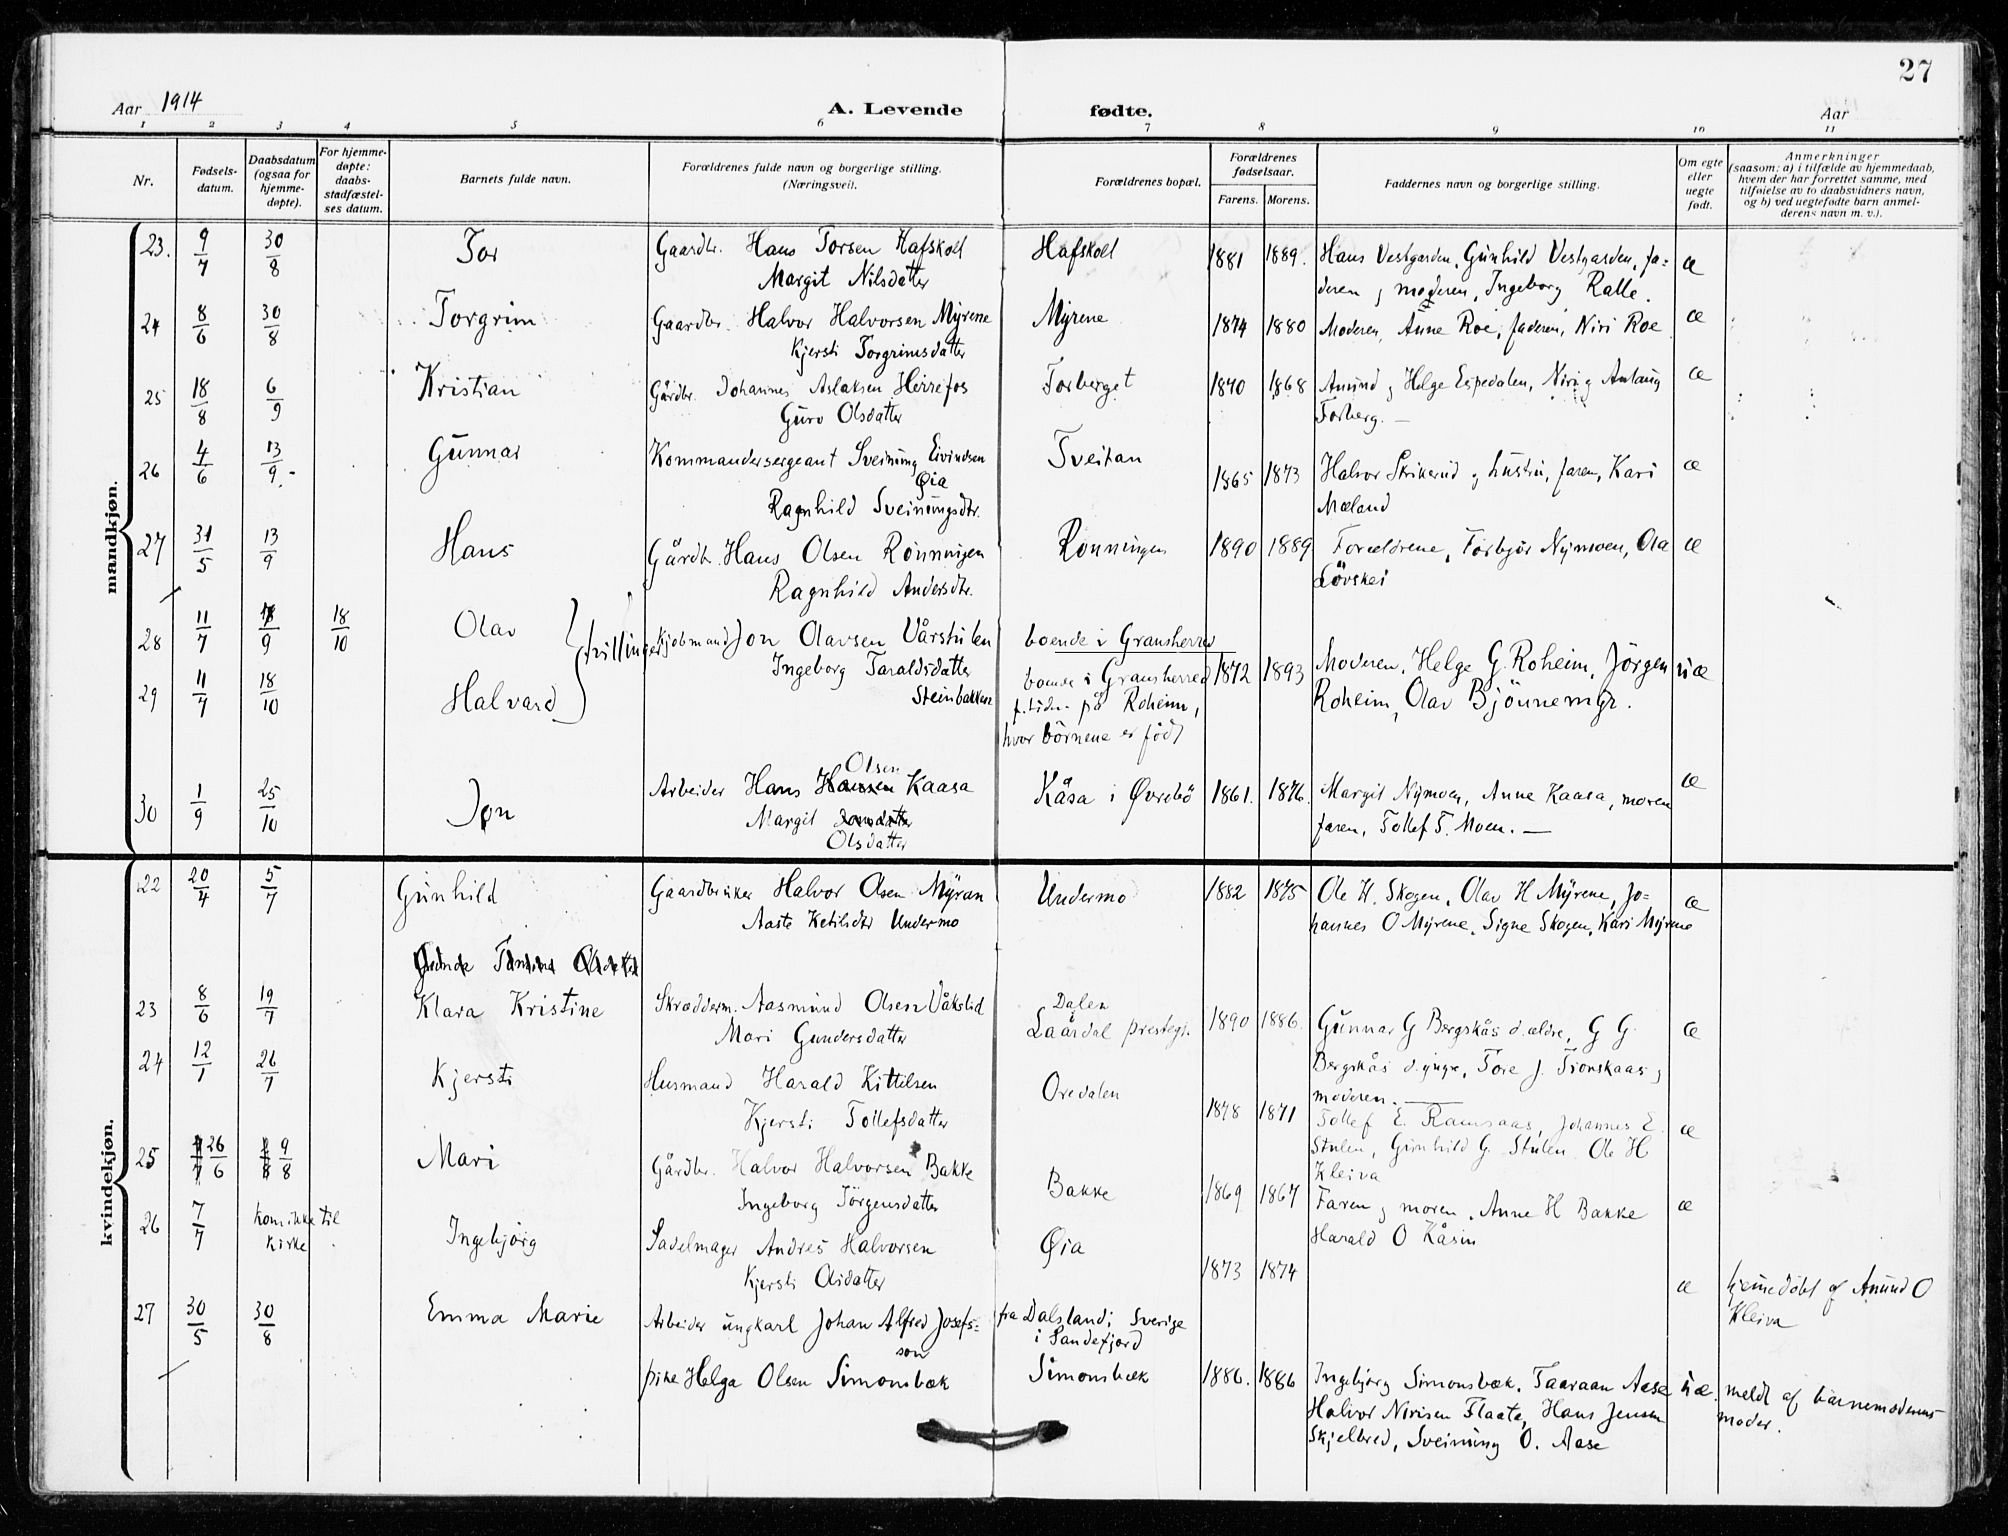 27
Aar 1914 A. Levende fødte. Aar
1 2 3 4 5 6 7 8 9 10 11
Nr.
Fødsels-
datum.
Daabsdatum
(ogsaa for
hjemme-
døpte).
For hjemme-
døpte:
daabs-
stadfæstel-
ses datum.
Barnets fulde navn.
Forældrenes fulde navn og borgerlige stilling.
(Næringsvei.)
Forældrenes bopæl.
Forældrenes
fødselsaar.
Farens. Morens.
Faddernes navn og borgerlige stilling.
Om egte
eller
uegte
født.
Anmerkninger
(saasom: a) i tilfælde av hjemmedaab,
hvem der har forrettet samme, med
tilføielse av to daabsvidners navn,
og b) ved uegtefødte barn anmel-
derens navn m. v.).
mandkjøn.
23. 9/7 30/8 Tor Gaardbr. Hans Torsen Hafskolt Hafskolt 1881 1889. Hans Vestgarden, Gunhild Vestgarden, fa= æ
Margit Nilsdatter deren og moderen, Ingeborg Ralle.
24 8/6 30/8 Torgrim Gaardbr. Halvor Halvorsen Myrene Myrene 1874 1880 Moderen, Anne Roe, faderen, Niri Roe æ
Kjersti Torgrimsdatter
25 18/8 6/9 Kristian Gårdbr. Johannes Aslaksen Herrefos Forberget 1870 1868 Anund og Helge Espedalen, Niri og Anlaug æ
Guro Olsdatter Forberg. —
26 4/6 13/9 Gunnar Kommandersergeant Sveinung Eivindsen Tveitan 1865 1873 Halvor Strikerud og hustru, faren, Kari æ
Øia Mæland
Ragnhild Sveinungsdtr.
27 31/5 13/9 Hans Gårdbr. Hans Olsen Rönningen Rönningen 1890 1889 Forældrene, Torbjör Nymoen, Ola æ
Ragnhild Andersdtr. Lövskei
28 11/7 9 18/10 Olav tvillinger Kjøbmand Jon Olavsen Vårstulen boende i Gransherred
Ingeborg Taraldsdatter boende i Gransherred 1872 1893 Moderen, Helge G. Roheim, Jörgen uæ
29 11/7 18/10 Halvard Steinbakken f. tiden på Roheim, Roheim, Olav Bjönnemyr.
hvor börnene er född
Olsen
30 1/9 25/10 Jon Arbeider Hans Hansen Kaasa Kåsa i Øvrebö 1861. 1876. Margit Nymoen, Anne Kaasa, moren æ
Margit Jonsdatter faren, Tollef T. Moen. —
Olsdatter
kvindekjøn.
22 20/4 5/7 Gunhild Gaardbruker Halvor Olsen Myran Undermo 1882 1875 Ole H. Skogen, Olav H Myrene, Jo- æ
Aaste Ketilsdtr Undermo hannes O Myrene, Signe Skogen, Kari Myrene
23 8/6 19/7 Klara Kristine Skrædderm. Aasmund Olsen Våkslid Dalen
Mari Gundersdatter Laardal prestegj. 1890 1886. Gunnar G Bergskås d. ældre, G G. æ
Bergskås d. yngre, Tore J. Tjonskaas og
moderen. —
24 12/1 26/7 Kjersti Husmand Harald Kittilsen Oredalen 1878 1871 Tollef E. Ramsaas, Johannes E. æ
Kjersti Tollefsdatter Stulen, Gunhild G. Stulen Ole H
Kleiva
25 26/6 9/8 Mari Gårdbr. Halvor Halvorsen Bakke Bakke 1869 1867 Faren og moren, Anne H Bakke æ
Ingeborg Jörgensdatter Harald O Kåsin
26 7/7 kom ikke til
kirke Ingebjörg Sadelmager Andres Halvorsen Øia 1873 1874 æ hjemmedöbt af Anund O
Kjersti Olsdatter Kleiva
27 30/5 30/8 Emma Marie Arbeider ungkarl Johan Alfred Josefs= fra Dalsland i Sverige
son i Sandefjord
pike Helga Olsen Simonsbæk Simonsbæk 1886. 1886 Ingebjörg Simonsbæk, Taaraan Aase uæ. meldt af barnemoderens
Halvor Nirisen Flaata, Hans Jensen moder.
Skjelbred, Sveinung O. Aase